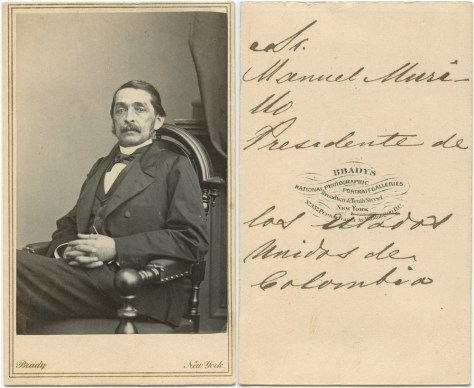 Brady
New York
Sr.
Manuel Muri-
llo
Presidente de
BRADY'S
NATIONAL PHOTOGRAPHIC
PORTRAIT GALLERIES,
Broadway & Tenth Street,
New York
los Estados
Unidos de
Colombia